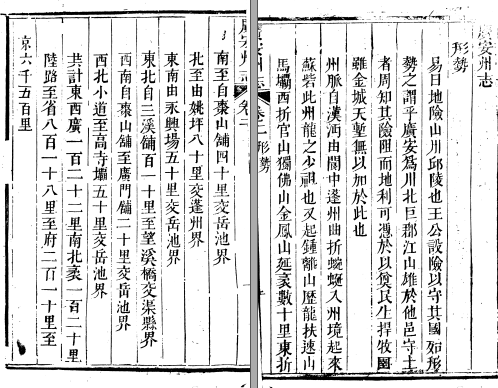 廣安州志
形勢
易曰地險山川邱陵也王公設險以守其國如形
勢之謂乎廣安爲川北巨郡江山雄於他邑守土
者周知其險阻而地利可憑於以奠民生捍牧圉
雖金城天塹無以加於此也
州脈自漢沔由閬中蓬州曲折蜿蜒入州境起來
蘇砦此州龍之少祖也又起鍾離山歷龍扶速山
馬壩西折官山獨佛山金鳳山延袤數十里東折
廣安州志 卷二 形勢
南至自棗山舖四十里交岳池界
北至由姚坪八十里交蓬州界
東南由永興場五十里交岳池界
東北自二溪舖百一十里至望溪橋交渠縣界
西南自棗山舖至廣門舖二十里交岳池界
西北小道至高寺壩五十里交岳池界
共計東西廣一百二十二里南北袤一百二十里
陸路至省八百一十八里至府二百一十里至
京六千五百里